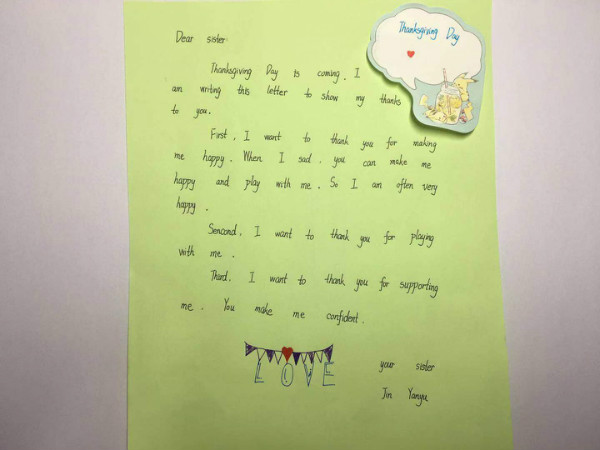 Thanksgiving Day
Dear sister:
Thanksgiving Day is coming. I
am writing this letter to show my thanks
to you.
First, I want to thank you for making
me happy. When I sad, you can make me
happy and play with me. So I am often very
happy.
Sencond, I want to thank you for playing
with me.
Third, I want to thank you for supporting
me. You make me confident.
LOVE
your sister
Jin Yanyu